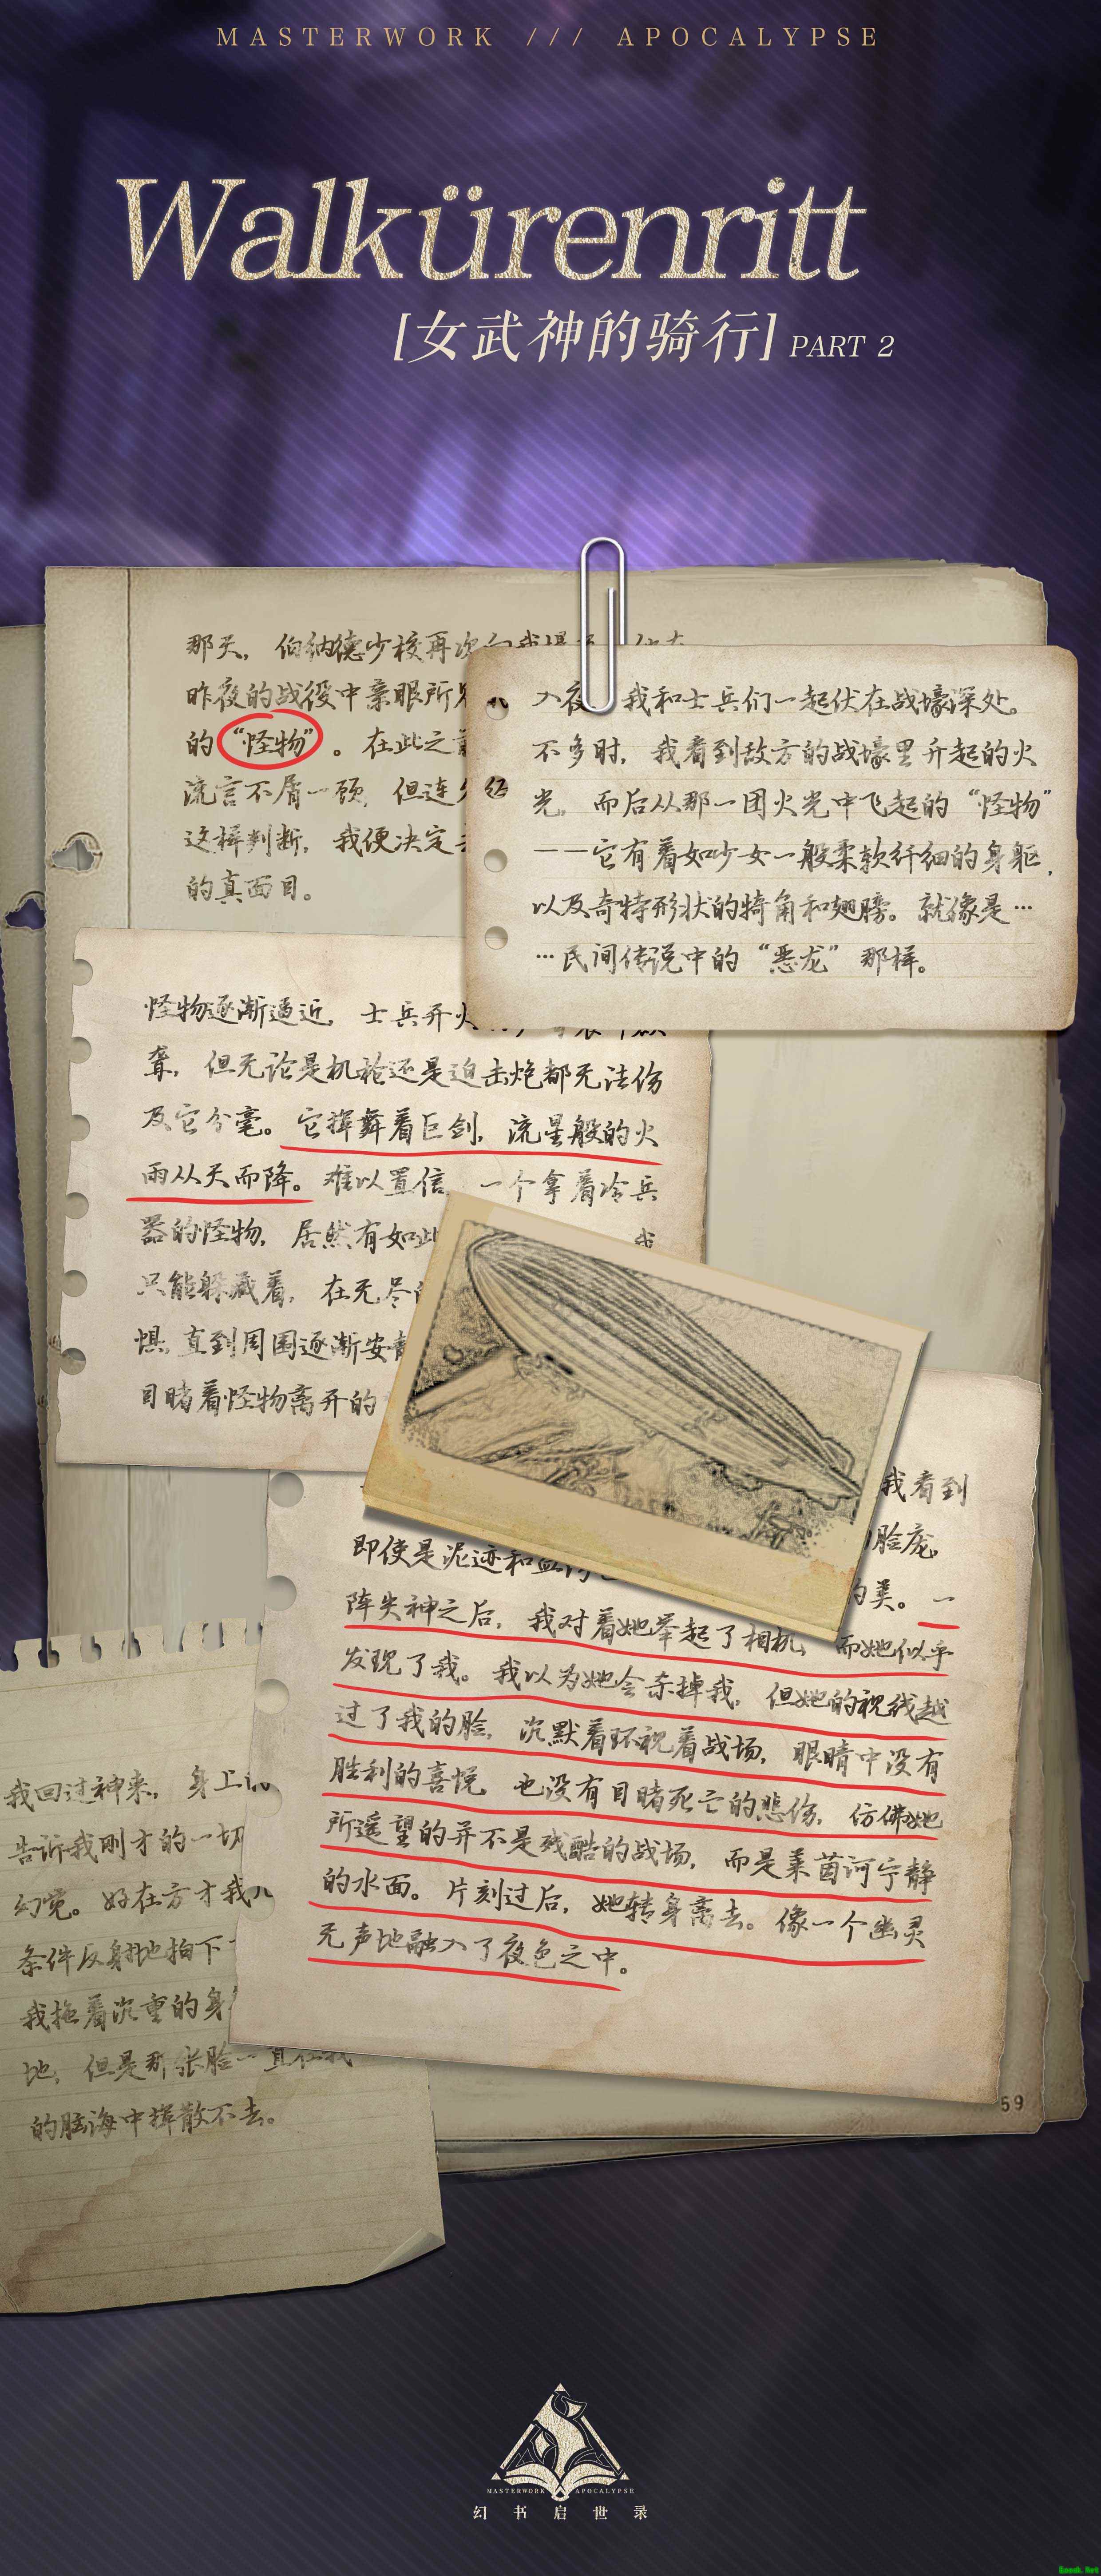 MASTERWORK /// APOCALYPSE
Walkürenritt
[女武神的骑行] PART 2
那天，伯纳德少校再次
昨夜的战役中亲眼所见
的“怪物”。在此之前
流言不屑一顾，但连
这样判断，我便决定
的真面目。
入夜 我和士兵们一起伏在战壕深处。
不多时，我看到敌方的战壕里升起的火
光，而后从那一团火光中飞起的“怪物”
——它有着如少女一般柔软纤细的身躯，
以及奇特形状的犄角和翅膀。就像是…
…民间传说中的“恶龙”那样。
怪物逐渐逼近，士兵开火
聋，但无论是机枪还是迫击炮都无法伤
及它分毫。它挥舞着巨剑，流星般的火
雨从天而降。难以置信，一个拿着冷兵
器的怪物，居然有如此 我
只能躲藏着，在无尽
惧，直到周围逐渐安静
目睹着怪物离开的
我看到
即使是泥迹和血 脸庞，
的美。一
阵失神之后，我对着她举起了相机，而她似乎
发现了我。我以为她会杀掉我，但她的视线越
过了我的脸，沉默着环视着战场，眼睛中没有
胜利的喜悦，也没有目睹死亡的悲伤，仿佛她
所遥望的并不是残酷的战场，而是莱茵河宁静
的水面。片刻过后，她转身离去。像一个幽灵
无声地融入了夜色之中。
我回过神来，身上
告诉我刚才的一切
幻觉。好在方才我
条件反射地拍下
我拖着沉重的身
地，但是那张脸一直在我
的脑海中挥散不去。
59
MASTERWORK APOCALYPSE
幻书启世录